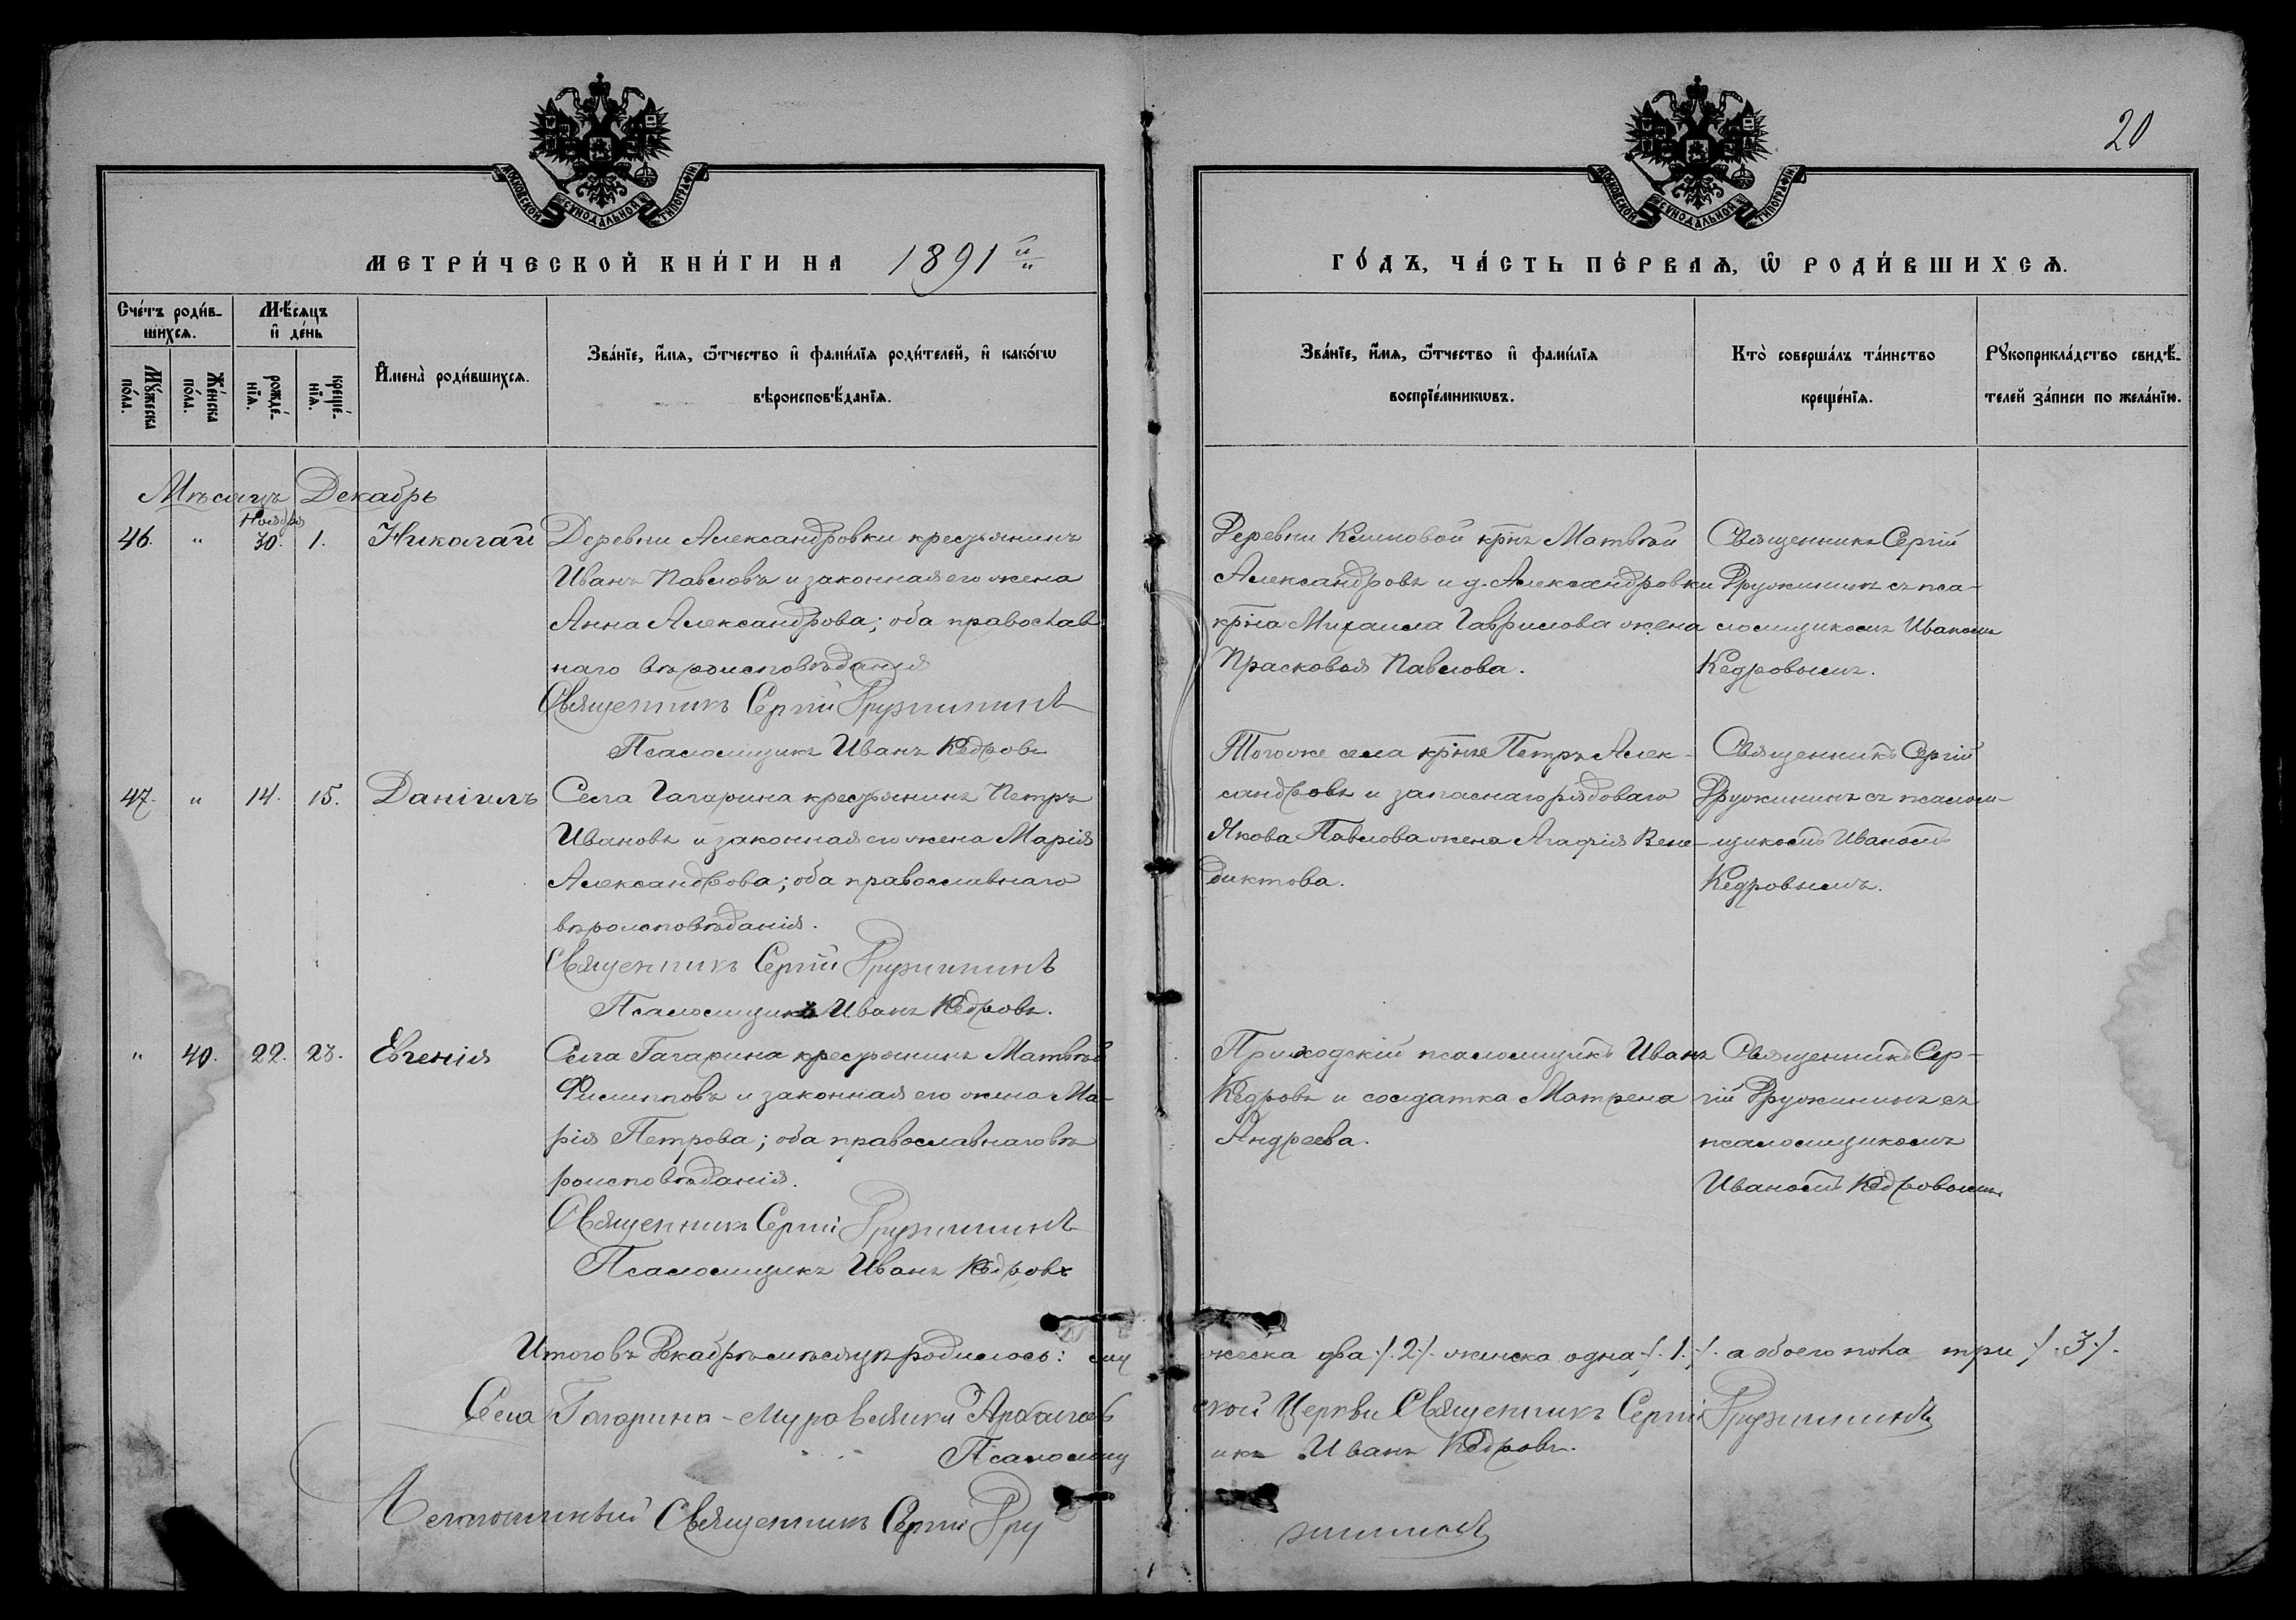 20
МОСКОВСКОЙ СУНОДАЛЬНОЙ ТИПОГРАФІИ
МОСКОВСКОЙ СУНОДАЛЬНОЙ ТИПОГРАФІИ
МЕТРИ́ЧЕСКОЙ КНИ́ГИ НА 1891й
ГО́ДЪ, ЧА́СТЬ ПЕ́РВАѦ, Ѡ҆ РОДИ́ВШИХСѦ.
Сче́тъ роди́в-
шихсѧ.
Мѣ́сѧцъ
и҆ де́нь
Мꙋ́жеска
по́ла.
Же́нска
по́ла.
рожде́-
нїѧ.
креще́-
нїѧ.
И҆мена̀ роди́вшихсѧ.
Зва́нїе, и҆́мѧ, ѻ҆́тчество и҆ фами́лїѧ роди́телей, и҆ како́гѡ
вѣроисповѣ́данїѧ.
Зва́нїе, и҆́мѧ, ѻ҆́тчество и҆ фами́лїѧ
воспрїе́мникѡвъ.
Кто̀ соверша́лъ та́инство
креще́нїѧ.
Рꙋкоприкла́дство свидѣ́-
телей за́писи по жела́нїю.
Мѣсяцъ Декабрь
Ноября
46. " 30. 1. Николай Деревни Александровки крестьянинъ
Иванъ Павловъ и законная его жена
Анна Александрова; оба православ
наго вѣроисповѣданія
Священникъ Сергій Дружининъ
Псаломщикъ Иванъ Кедровъ
Деревни Климовой крнъ Матвѣй
Александровъ и д. Александровки
крна Михаила Гаврилова жена
Прасковья Павлова.
Священникъ Сергій
Дружининъ съ пса-
ломщикомъ Иваномъ
Кедровымъ.
47. " 14. 15. Даніилъ Села Гагарина крестьянинъ Петръ
Ивановъ и законная его жена Марія
Александрова; оба православнаго
вѣроисповѣданія.
Священникъ Сергій Дружининъ
Псаломщикъ Иванъ Кедровъ.
Того же села крнъ Петръ Алек-
сандровъ и запаснаго рядоваго
Якова Павлова жена Агафія Вене-
диктова.
Священникъ Сергій
Дружининъ съ псалом-
щикомъ Иваномъ
Кедровымъ.
" 40. 22. 23. Евгенія Села Гагарина крестьянинъ Матвѣй
Филипповъ и законная его жена Ма-
рія Петрова; оба православнаго вѣ
роисповѣданія.
Священникъ Сергій Дружининъ
Псаломщикъ Иванъ Кедровъ
Приходскій псаломщикъ Иванъ
Кедровъ и солдатка Матрена
Андреева.
Священникъ Сер-
гій Дружининъ съ
псаломщикомъ
Иваномъ Кедровымъ.
Итого въ Декабрѣ мѣсяцѣ родилось: муж
жеска два /.2/. женска одна /.1./. а обоего пола три /.3/.
Села Гагарина-Муравлянки Архангель
ской Церкви Священникъ Сергій Дружининъ
Псаломщ
икъ Иванъ Кедровъ.
Священникъ Сергій Дру
жининъ